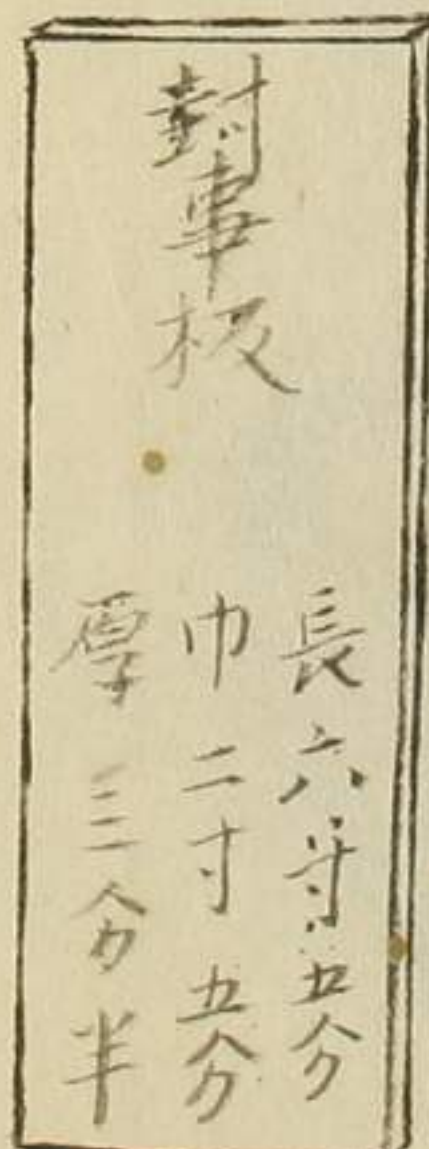 封事板
長六寸五分
巾二寸五分
厚三分半